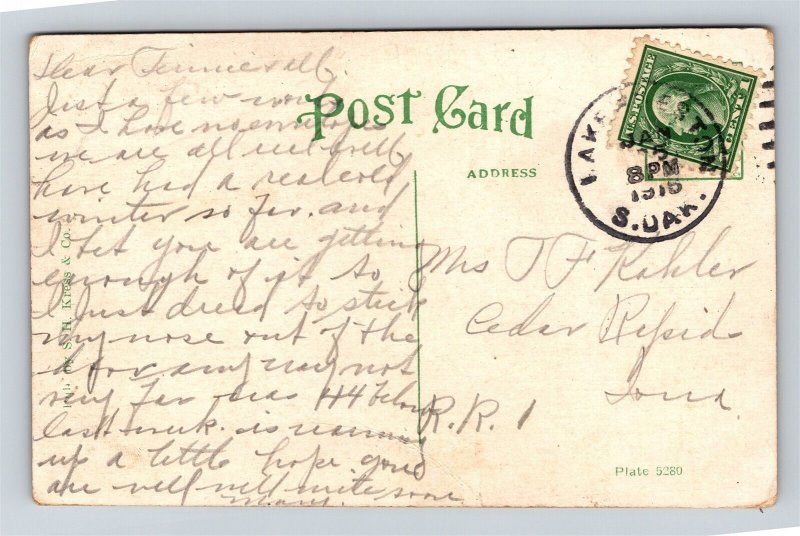 Dear
Just a few
POST CARD
as I have no
we are all well
ADDRESS
have had a real cold
winter so far. and
I bet you are getting
enough of it so
I just dread to stick
my nose out of the
door any way not
very far was 44 below
last week. is warming
up a little hope you
are well will write soon
Mary.
Pub. by S. H. Kress & Co.
U.S. POSTAGE
1 CENT 1
LAKE PRESTON
JAN
8 PM
S. DAK.
Mrs T F Kohler
Cedar Rapids
Iowa.
R.R. 1
Plate 5280